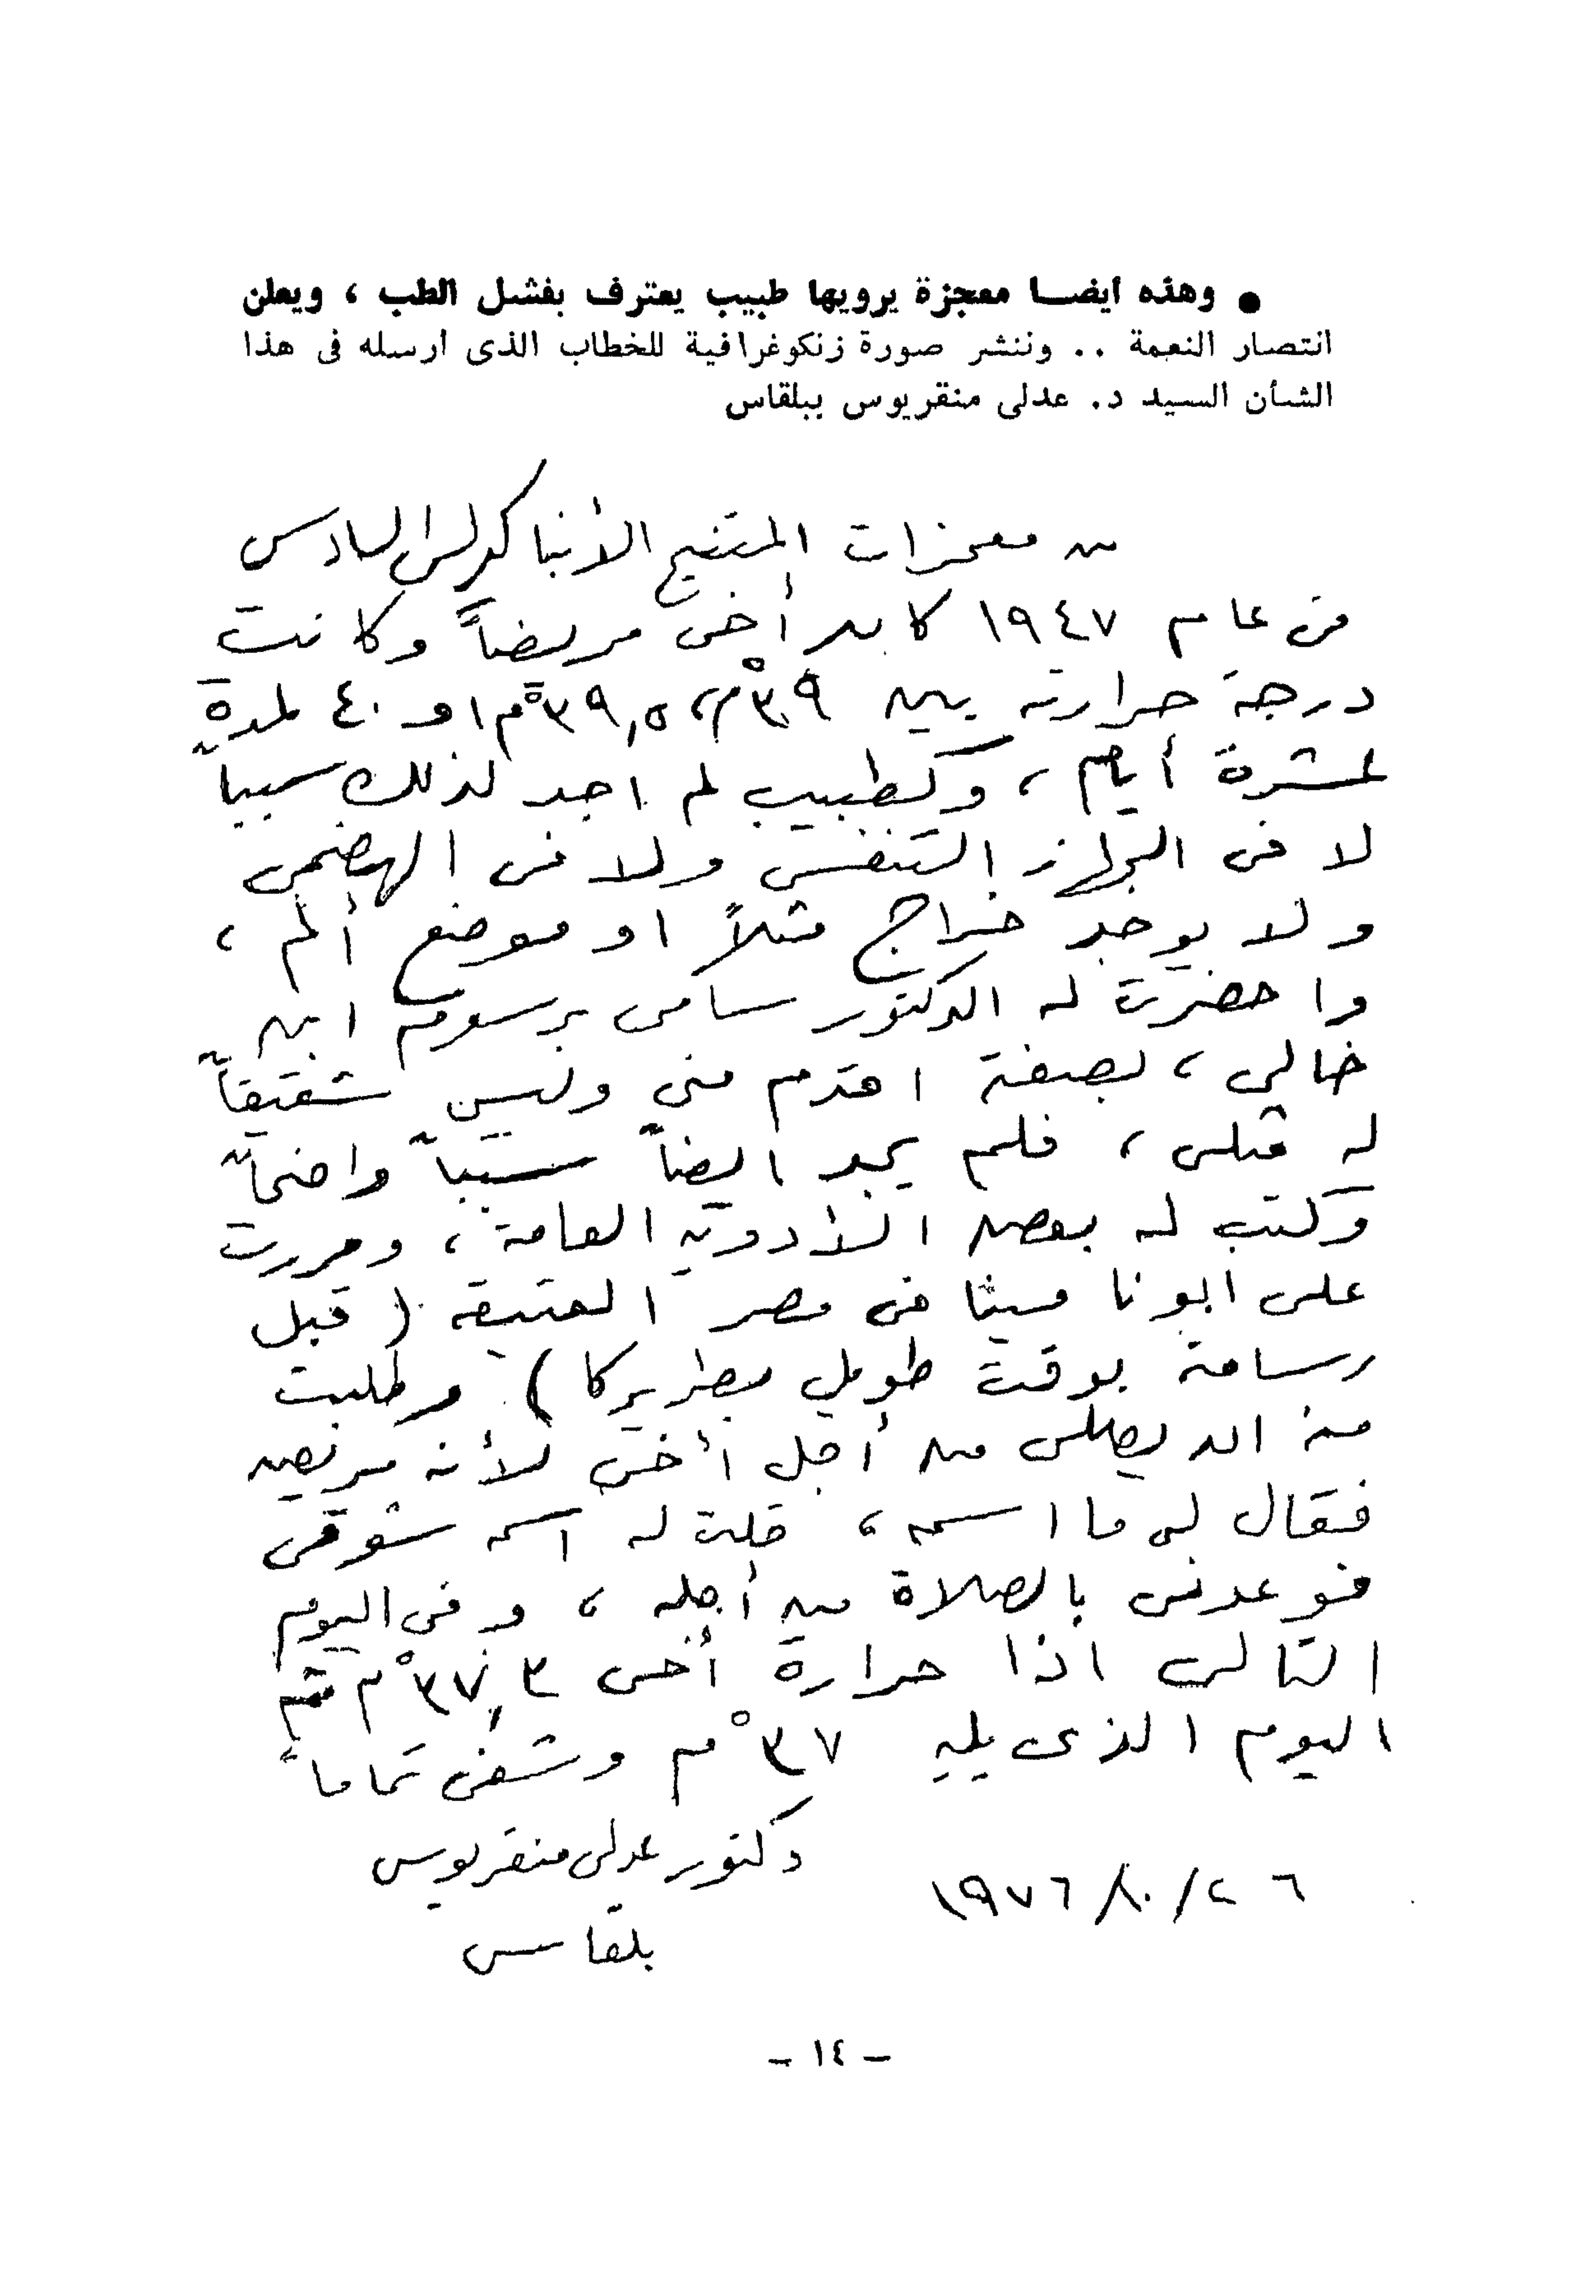 ● وهذه ايضا معجزة يرويها طبيب يعترف بفشل الطب ، ويعلن
انتصار النعمة .. وننشر صورة زنكوغرافية للخطاب الذى ارسله فى هذا
الشأن السيد د. عدلى منقريوس ببلقاس
من معجزات المتنيح الأنبا كيرلس السادس
فى عام ١٩٤٧ كان أخى مريضاً وكانت
درجة حرارته بين ٣٩°م ، ٣٩,٥°م او ٤٠ لمدة
عشرة أيام ، وكطبيب لم اجد لذلك سبباً
لا فى الجهاز التنفسى ولا فى الهضمى
ولا يوجد خراج مثلاً او موضع ألم ،
واحضرت له الدكتور سامى برسوم ابن
خالى ، بصفته اقدم منى وليس شقيقاً
له مثلى ، فلم يجد ايضاً سبباً واضحاً
وكتب له بعض الأدوية العامة ، ومررت
على ابونا مينا فى مصر العتيقة ( قبل
رسامته بوقت طويل بطريركا ) وطلبت
منه ان يصلى من أجل أخى لأنه مريض
فقال لى ما اسمه ، قلت له اسمه شوقى
فوعدنى بالصلاة من أجله ، وفى اليوم
التالى اذا حرارة أخى ٣٧,٣°م ثم
اليوم الذى يليه ٣٧°م وشفى تماماً
دكتور عدلى منقريوس
٢٦/١٠/١٩٧٦
بلقاس
– ١٤ –